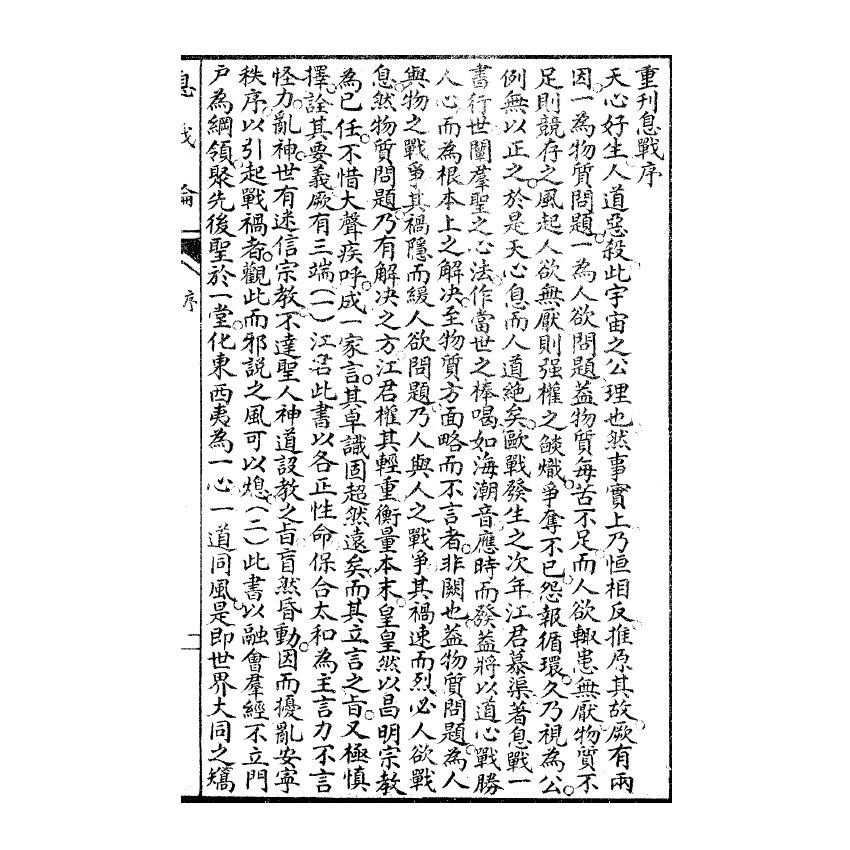 重刊息戰序
天心好生人道惡殺此宇宙之公理也然事實上乃恒相反推原其故厥有兩
因一為物質問題一為人欲問題蓋物質每苦不足而人欲輒患無厭物質不
足則競存之風起人欲無厭則强權之燄熾爭奪不已怨報循環久乃視為公
例無以正之於是天心息而人道絶矣歐戰發生之次年江君慕渠著息戰一
書行世闡羣聖之心法作當世之棒喝如海潮音應時而發蓋將以道心戰勝
人心而為根本上之解决至物質方面略而不言者非闕也蓋物質問題為人
與物之戰爭其禍隱而緩人欲問題乃人與人之戰爭其禍速而烈必人欲戰
息然物質問題乃有解决之方江君權其輕重衡量本末皇皇然以昌明宗教
為已任不惜大聲疾呼成一家言其卓識固超然遠矣而其立言之旨又極慎
擇詮其要義厥有三端（一）江君此書以各正性命保合太和為主言力不言
怪力亂神世有迷信宗教不達聖人神道設教之旨盲然昏動因而擾亂安寧
秩序以引起戰禍者觀此而邪説之風可以熄（二）此書以融會羣經不立門
户為綱領聚先後聖於一堂化東西夷為一心一道同風是即世界大同之鵠
息戰論
序
二